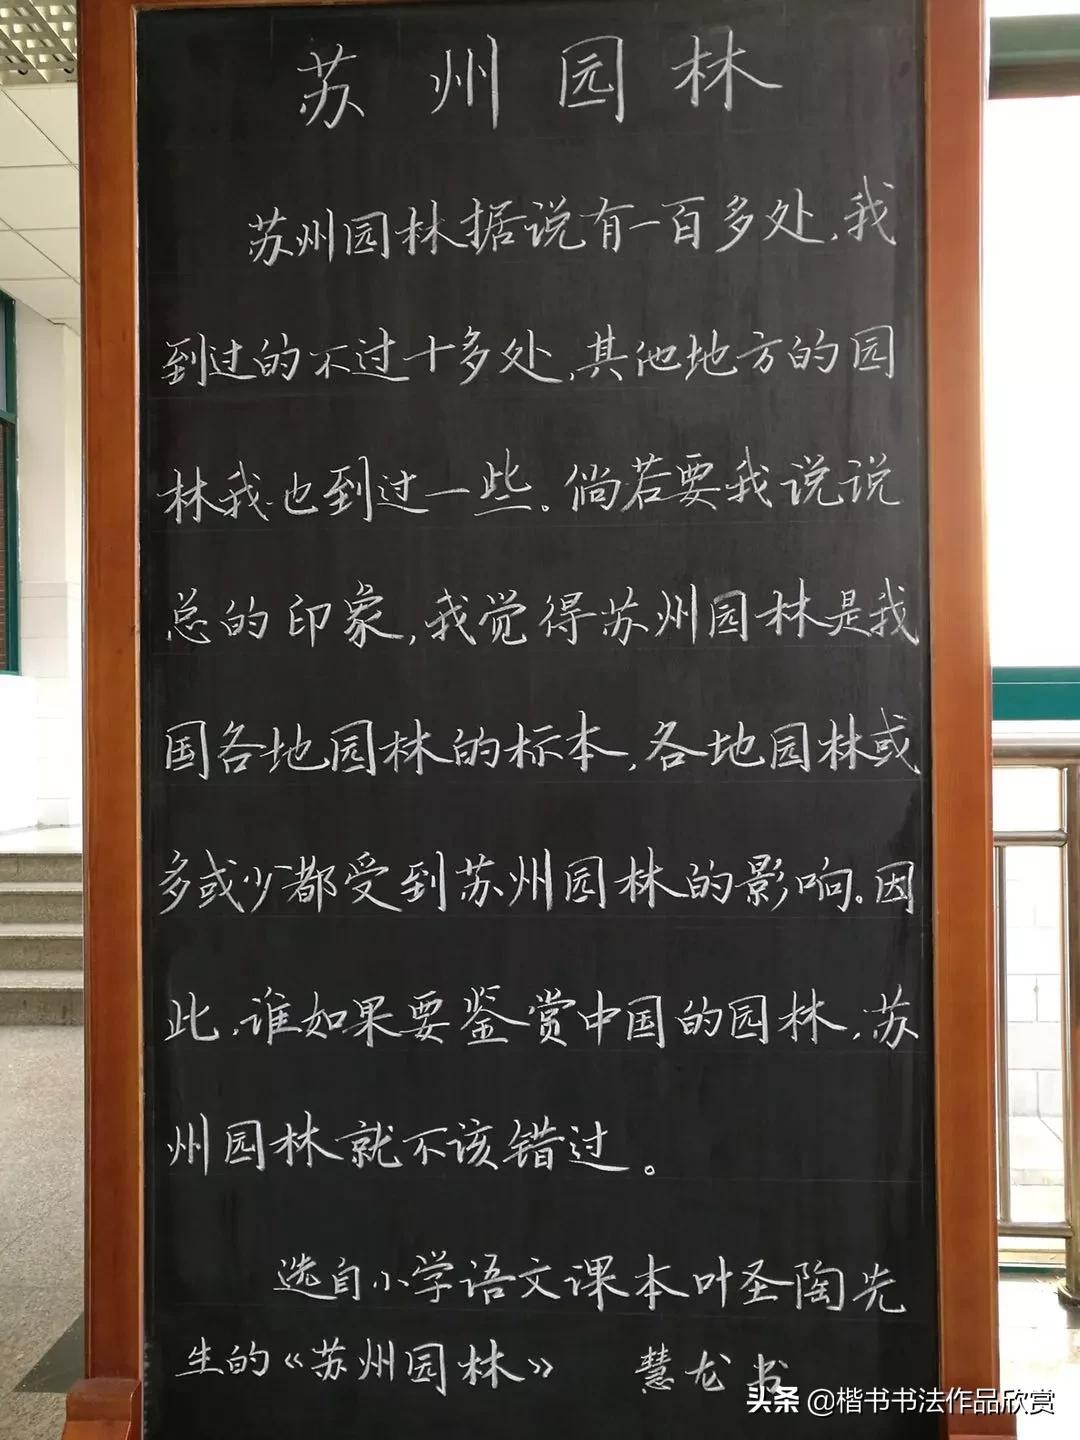 苏州园林
苏州园林据说有一百多处,我
到过的不过十多处,其他地方的园
林我也到过一些。倘若要我说说
总的印象,我觉得苏州园林是我
国各地园林的标本,各地园林或
多或少都受到苏州园林的影响。因
此,谁如果要鉴赏中国的园林,苏
州园林就不该错过。
选自小学语文课本叶圣陶先
生的《苏州园林》 慧龙书
头条@楷书书法作品欣赏